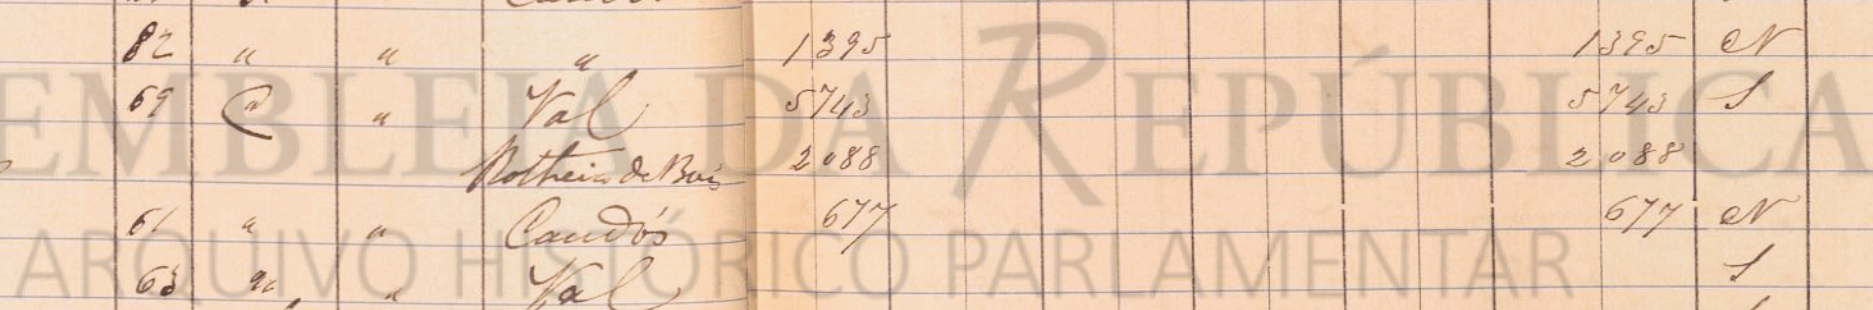 82 " " " 1395 1395 N
69 C " Val 5743 5743 S
de 2088 2088
61 " " 677 677 N
63 " " Val S
EMBLEIA DA REPÚBLICA
ARQUIVO HISTÓRICO PARLAMENTAR